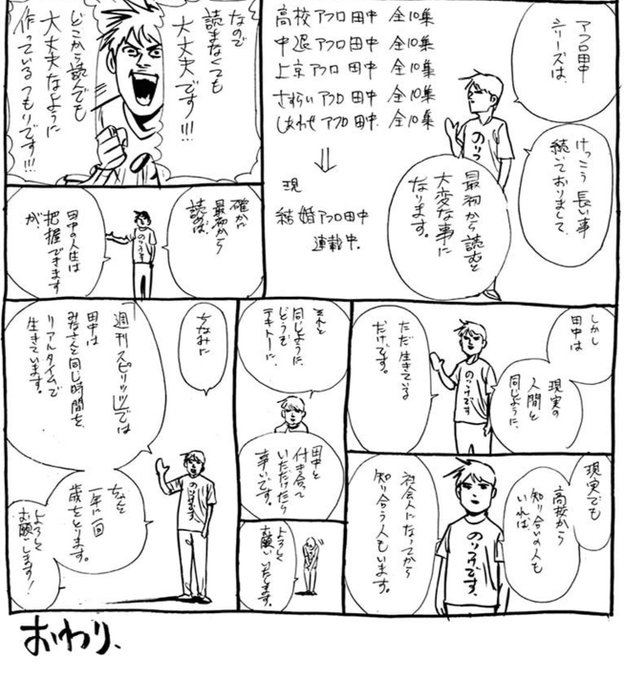 アフロ田中
シリーズは、
けっこう長い事
続いておりまして、
高校アフロ田中 全10集
中退アフロ田中 全10集
上京アフロ田中 全10集
さすらいアフロ田中 全10集
しあわせアフロ田中 全10集
⇓
現
結婚アフロ田中
連載中.
のりつけ
最初から読むと
大変な事に
なります。
なので
読まなくても
大丈夫です!!!
どこから読んでも
大丈夫なように
作っているつもりです!!!
確かに
最初から
読めば、
田中の人生は
把握できます
が、
しかし
田中は
現実の
人間と
同じように、
ただ生きている
だけです。
のりつけです
現実でも
高校から
知り合いの人も
いれば、
社会人になってから
知り合う人もいます。
のりつけです。
それと
同じように、
どうぞ
テキトーに、
田中と
付き合って
いただけたら
幸いです。
よろしく
お願いいたします。
ちなみに
「週刊スピリッツ」では
田中は
みなさんと同じ時間を
リアルタイムで
生きています。
なんと
一年に一回
歳をとります。
よろしく
お願いします!
おわり、